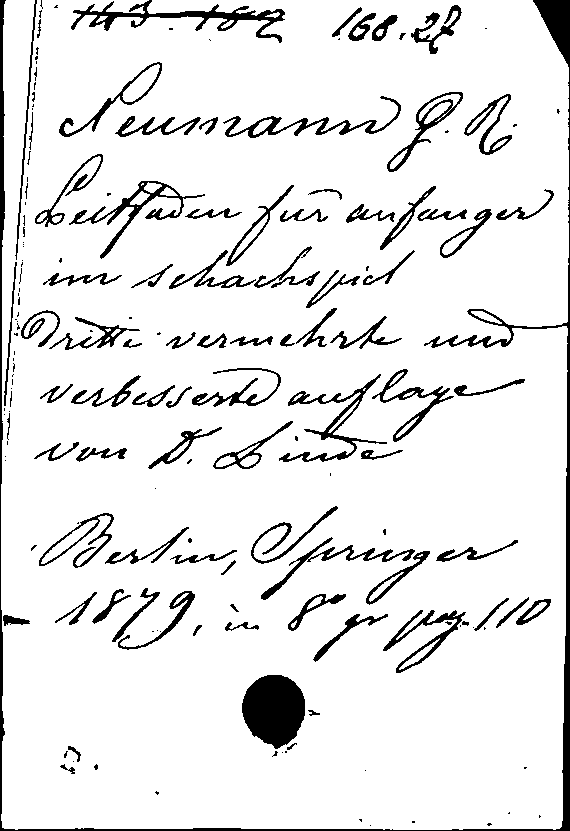 143. 187 168.27
Neumann G. R.
Leitfaden für anfanger
im schachspiel
Dritte vermehrte und
verbesserte auflage
von D. Linde
Berlin, Springer
1879, in 8° gr pag. 110